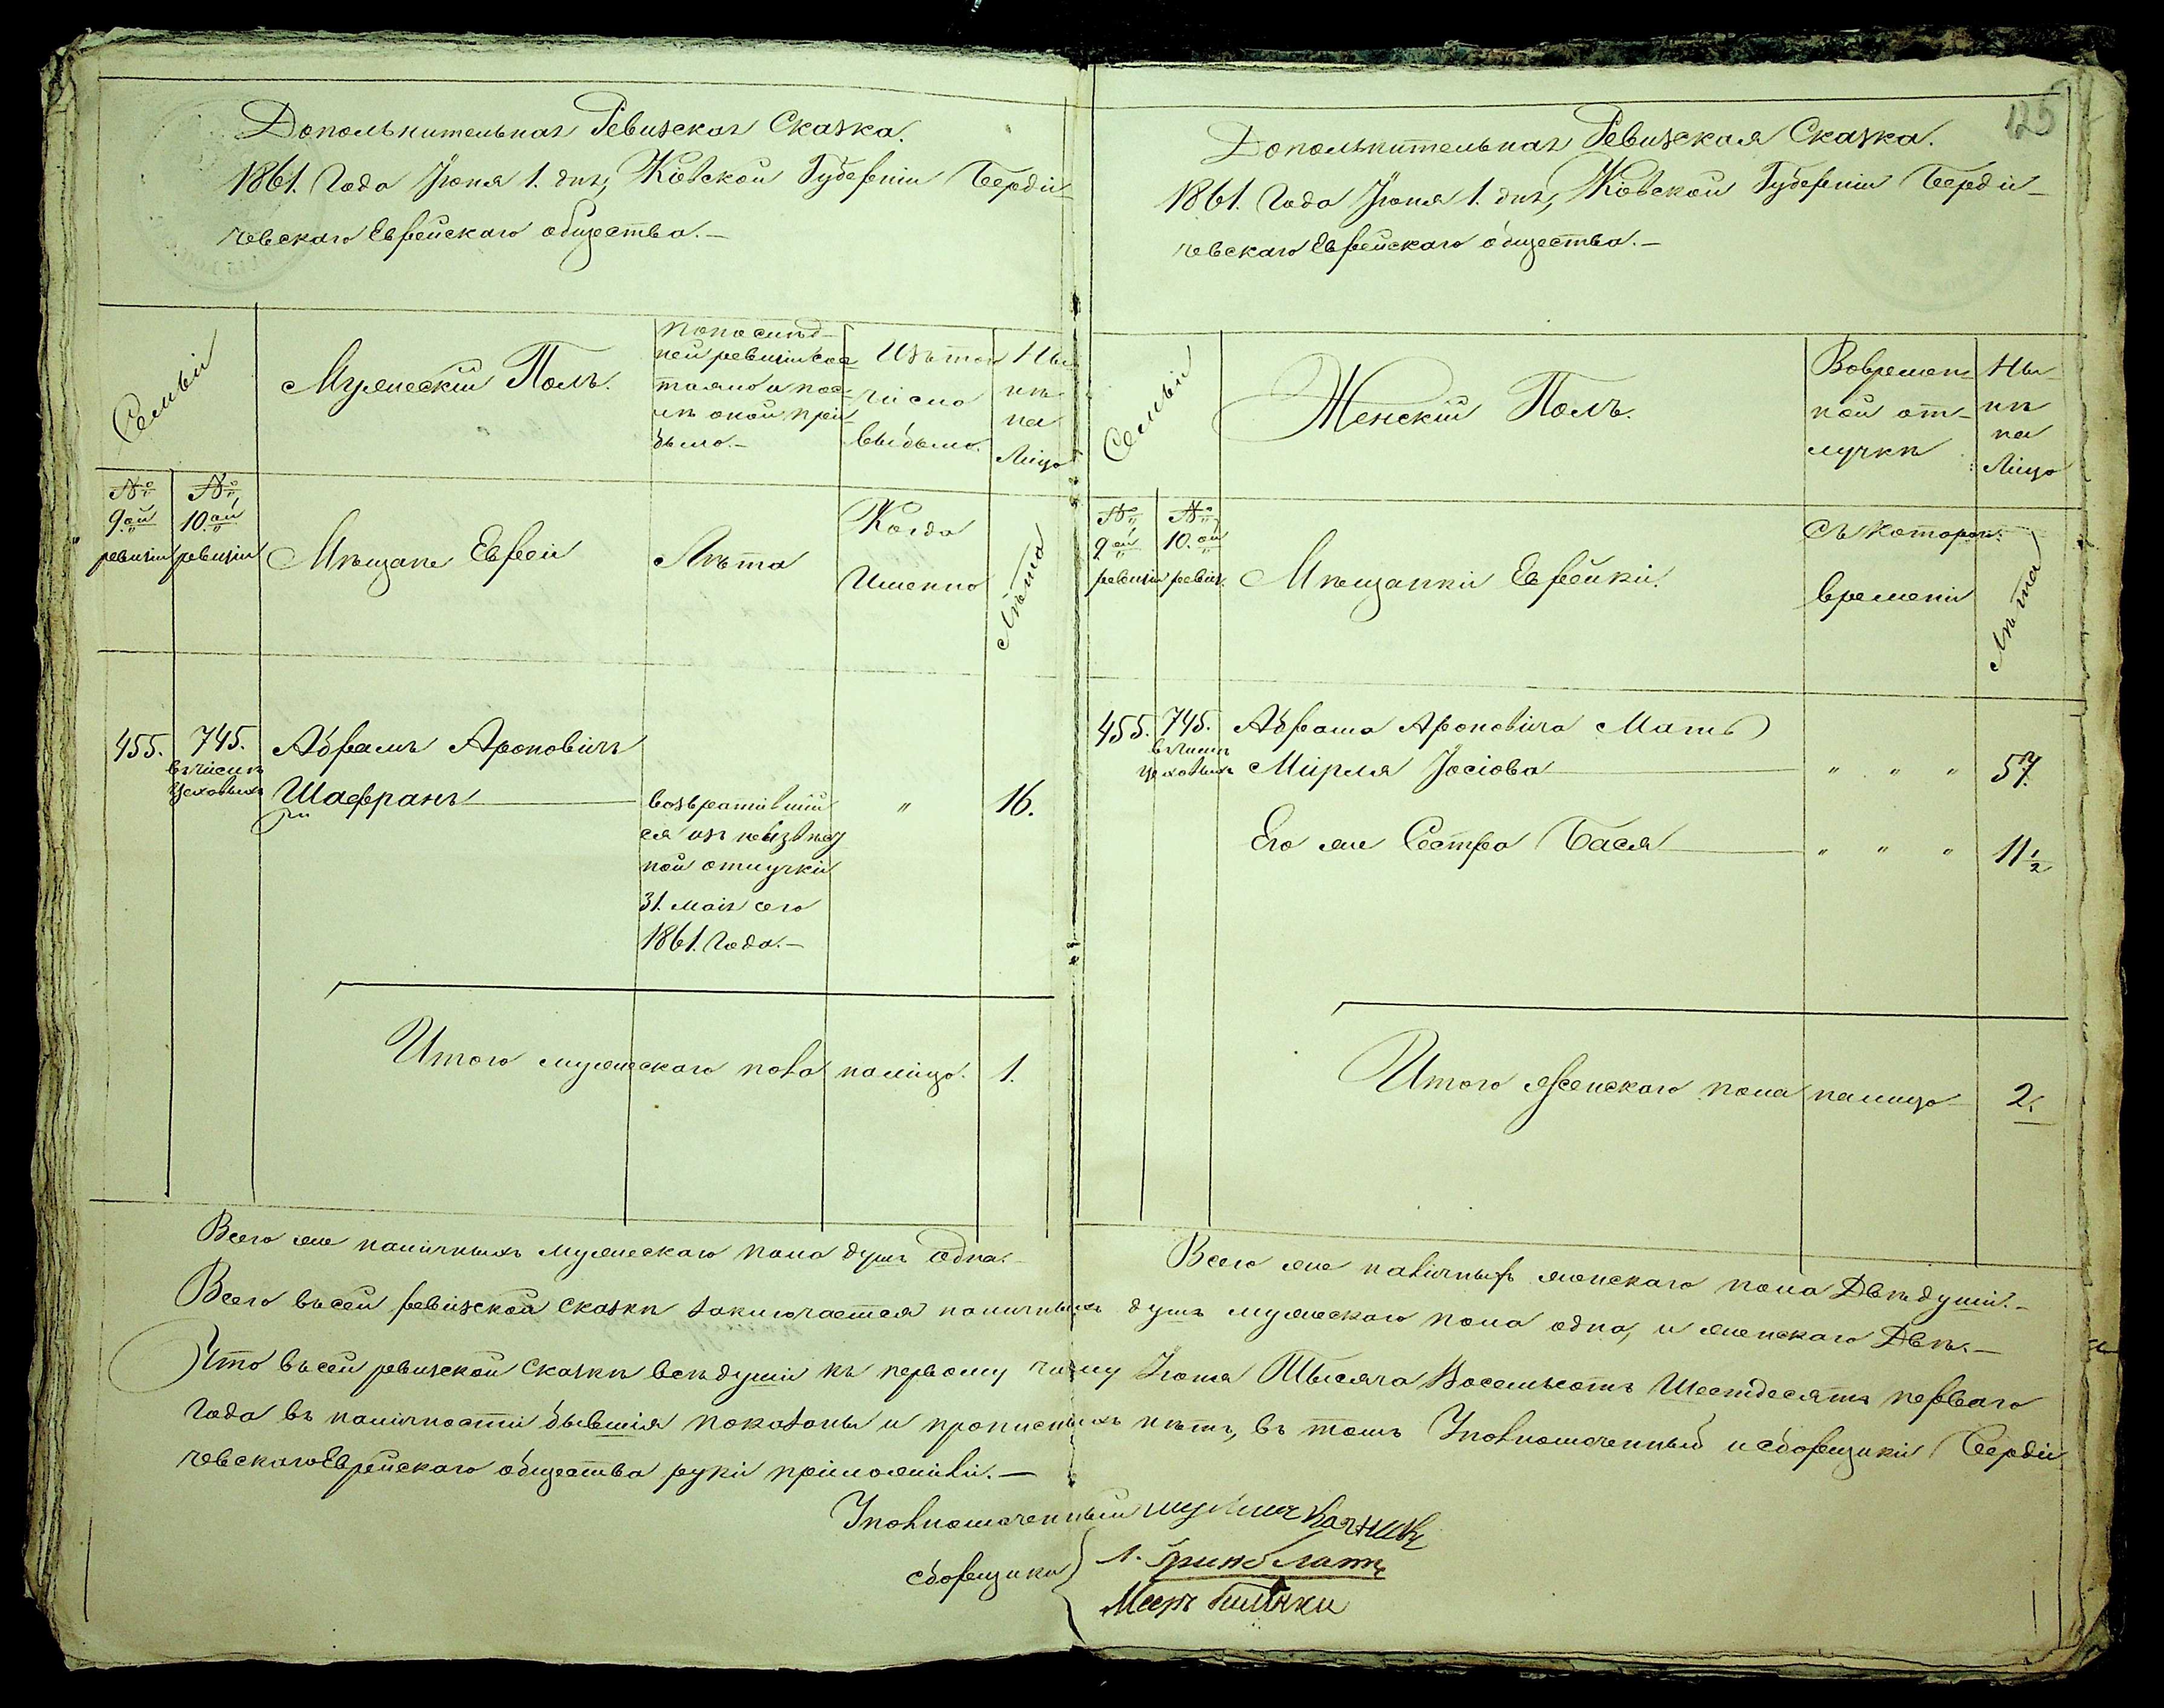 Дополнительная Ревизская Сказка.
1861. Года Іюня 1. дня, Кіевской Губерніи Берди-
чевскаго Еврейскаго общества.—
Семьи
Мужескій Полъ.
По послѣд-
ней ревизіи сос-
тояло и пос-
лѣ оной при-
было.—
Изъ того
числа
выбыло.
Ны-
нѣ
на
Лицо
№
9.ой
ревизіи
№
10.ой
ревизіи
Мѣщане Евреи
Лѣта
Когда
Именно
Лѣта
455.
745.
въ числѣ
цеховыхъ
Абрамъ Ароновичъ
Шафранъ
возвратившій
ся изъ неизвѣст
ной отлучки
31. мая сего
1861. Года.—
"
16.
Итого мужескаго пола налицо.
1.
Всего же наличныхъ мужескаго пола душъ одна.—
125
Дополнительная Ревизская Сказка.
1861. Года Іюня 1. дня, Кіевской Губерніи Берди-
чевскаго Еврейскаго общества.—
Семьи
Женскій Полъ.
Во времен-
ной от-
лучкѣ
Ны-
нѣ
на
Лицо
№
9.ой
ревизіи
№
10.ой
ревиз.
Мѣщанки Еврейки.
Съ котораго
времени
Лѣта
455.
745.
въ числѣ
цеховыхъ
Абрама Ароновича Мать
Мирля Іосіова " " " 57.
Его же Сестра Бася " " " 11½
Итого женскаго пола налицо
2.
Всего же наличныхъ женскаго пола Двѣ души.—
Всего въ сей ревизской сказкѣ заключается наличныхъ душъ мужескаго пола одна, и женскаго Двѣ.—
Что въ сей ревизской сказкѣ всѣ души къ первому числу Іюня Тысяча Восемьсотъ Шестдесятъ перваго
Года въ наличности бывшія показаны и прописныхъ нѣтъ, въ томъ Уполномоченный и сборщики Берди
чевского Еврейскаго общества руки приложили.—
Уполномоченный
сборщики
Л. Гринблатъ
Мееръ